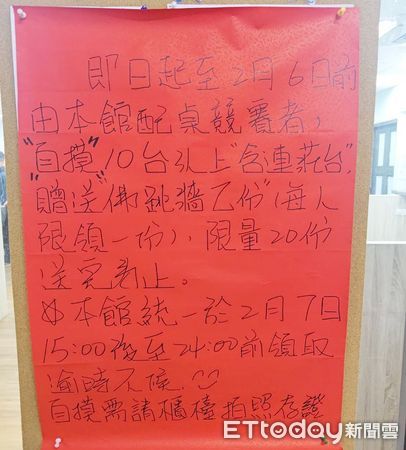 即日起至2月6日前
由本館配桌競賽者,
"自摸"10台以上"含連莊台",
"贈送"佛跳牆乙份"(每人
限領一份),限量20份
送完為止。
※本館統一於2月7日
15:00後至24:00前領取
逾時不候.
自摸需請櫃檯拍照存證
ETtoday新聞雲